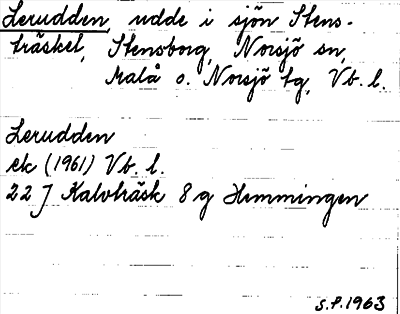 Lerudden, udde i sjön Stens-
träsket, Stensborg, Norsjö sn,
Malå o. Norsjö tg, Vb. l.
Lerudden
ek (1961) Vb. l.
22 J Kalvträsk 8 g Hemmingen
S.P. 1963